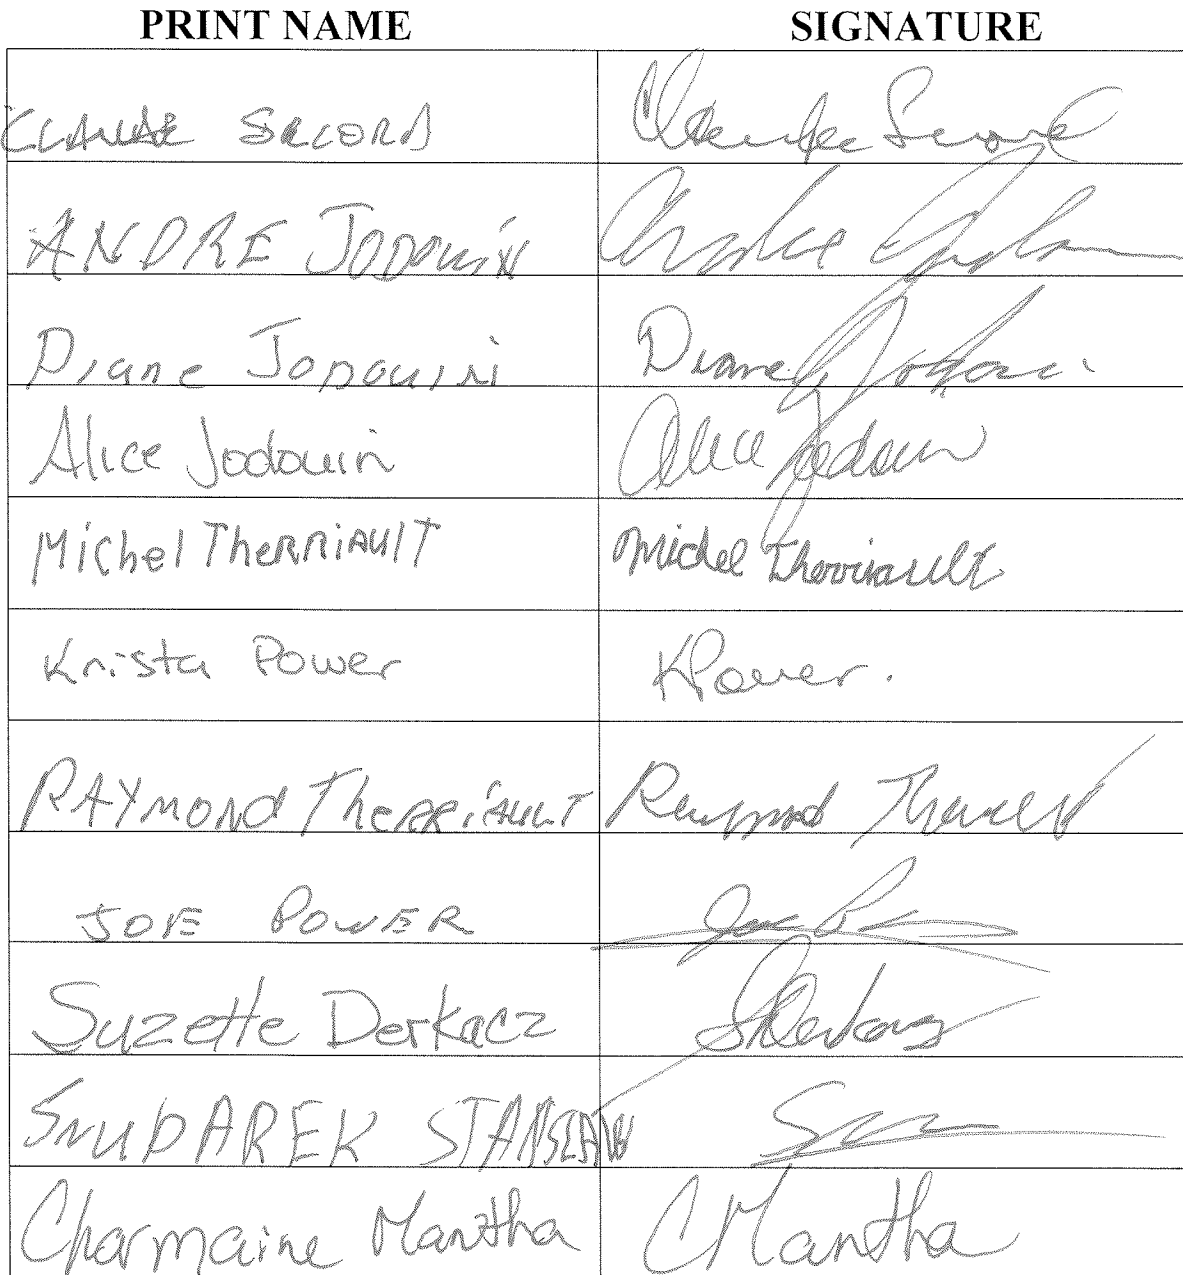 PRINT NAME SIGNATURE
CLAUDE SECORD Claude Secord
ANDRE JODOUIN Andre Jodouin
Diane JODOUIN Diane Jodouin
Alice Jodouin Alice Jodouin
Michel Therriault Michel Therriault
Krista Power KPower.
RAYMOND Therriault Raymond Therriault
JOE POWER Joe
Suzette Derkacz SDerkacz
Charmaine Mantha CMantha